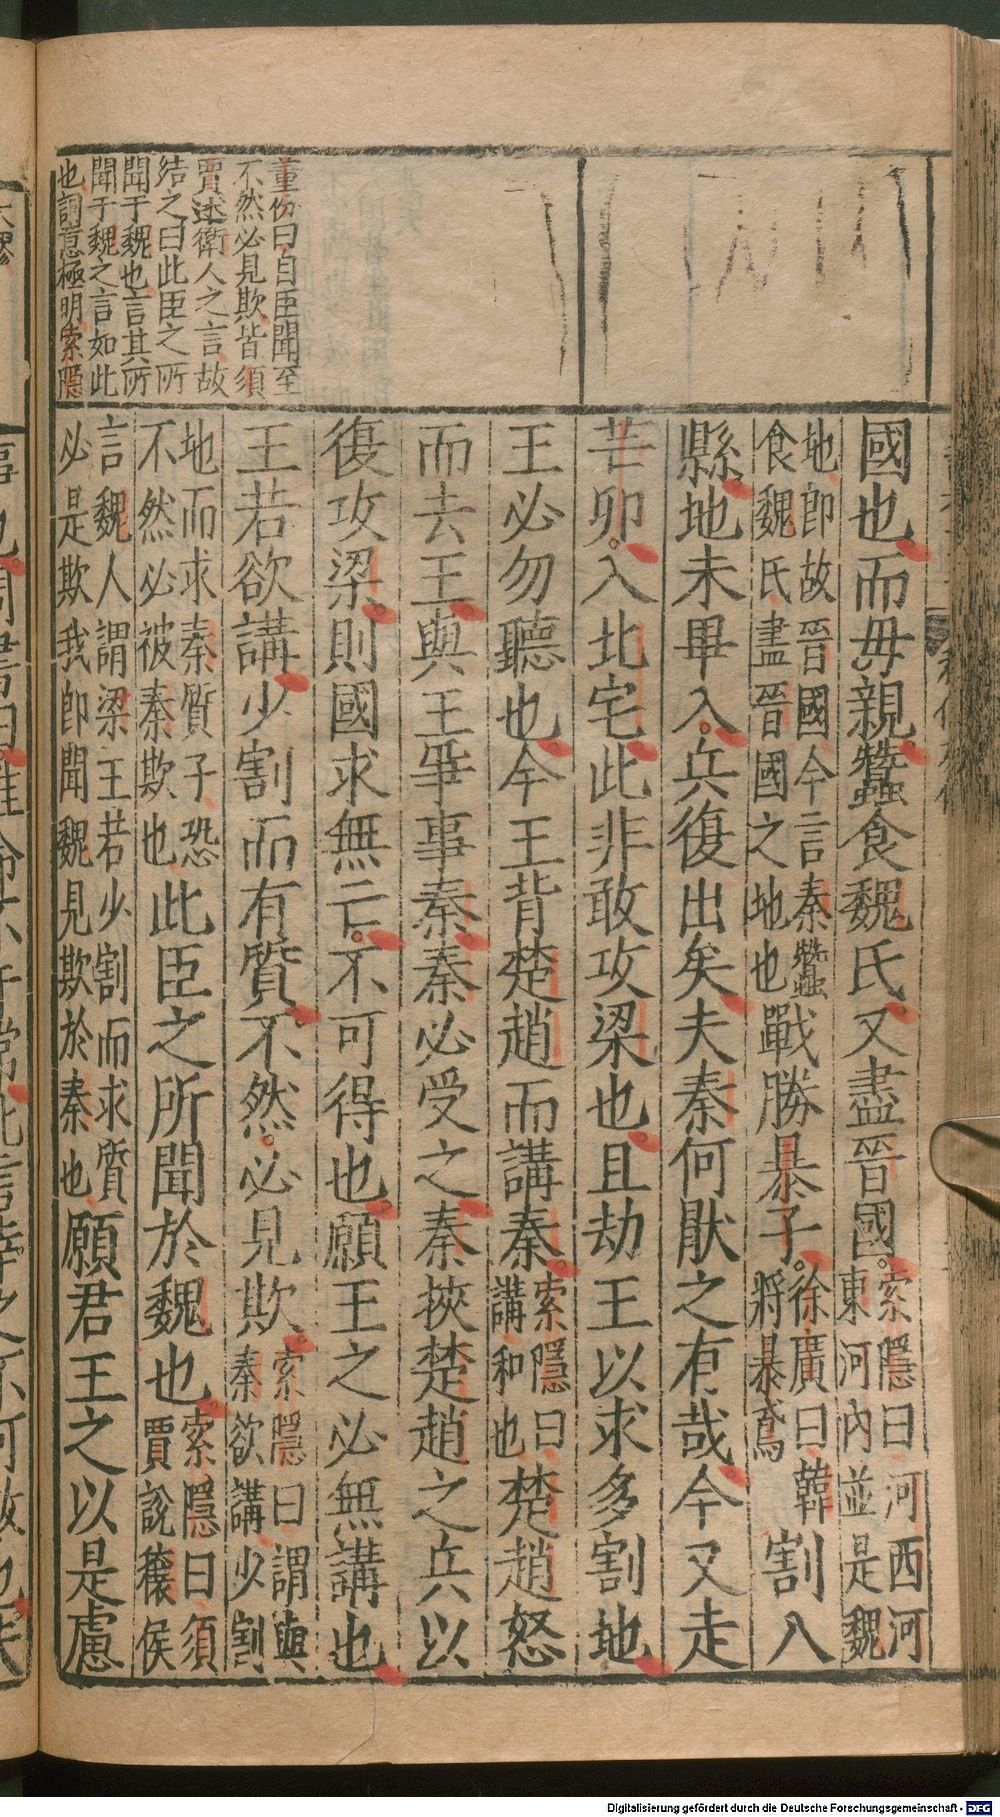 董份曰自臣聞至
不然必見欺皆須
賈述衛人之言故
結之曰此臣之所
聞于魏也言其所
聞于魏之言如此
也詞意極明索隱
國也而毋親蠶食魏氏又盡晉國索隱曰河西河東河內並是魏
地即故晉國今言秦蠶食魏氏盡晉國之地也戰勝暴子徐廣曰韓將暴鳶割八
縣地未畢入兵復出矣夫秦何猒之有哉今又走
芒卯入北宅此非敢攻梁也且劫王以求多割地
王必勿聽也今王背楚趙而講秦索隱曰講和也楚趙怒
而去王與王爭事秦秦必受之秦挾楚趙之兵以
復攻梁則國求無亡不可得也願王之必無講也
王若欲講少割而有質不然必見欺索隱曰謂與秦欲講少割
地而求秦質子恐不然必被秦欺也此臣之所聞於魏也索隱曰須賈說穰侯
言魏人謂梁王若少割而求質必是欺我即聞魏見欺於秦也願君王之以是慮
Digitalisierung gefördert durch die Deutsche Forschungsgemeinschaft - DFG